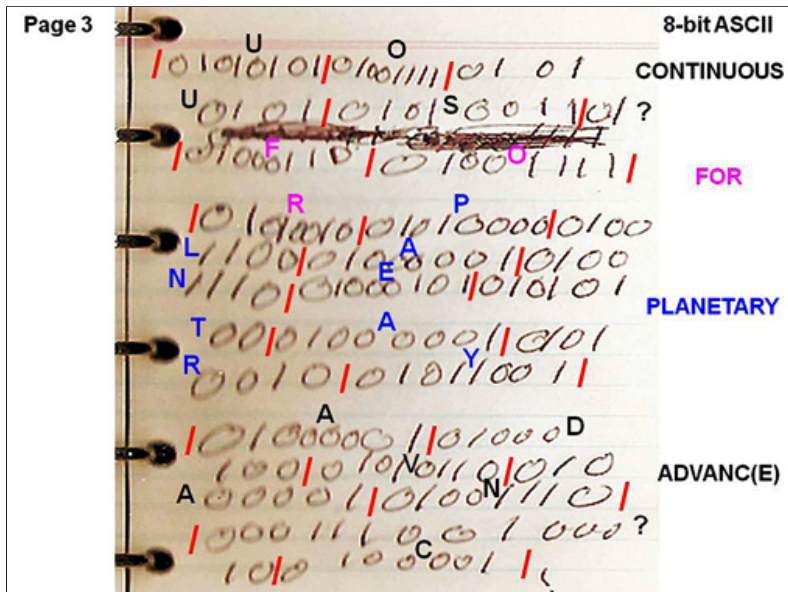 Page 3 8-bit ASCII
U O
/ 01010101 / 01001111 / 0101 CONTINUOUS
U 0101 / 0101 S 0011 / 01 ?
F O
/ 01000110 / 01001111 / FOR
R P
/ 01010010 / 01010000 / 0100
L A
1100 / 01000001 / 0100
N E
1110 / 01000101 / 010101 PLANETARY
T A
00 / 01000001 / 0101
R Y
0010 / 01011001 /
A
/ 01000001 / 01000 D
V
100 / 01010110 / 010 ADVANC(E)
A N
00001 / 01001110 /
/ 000111001000 ?
C
10/0 100001 /